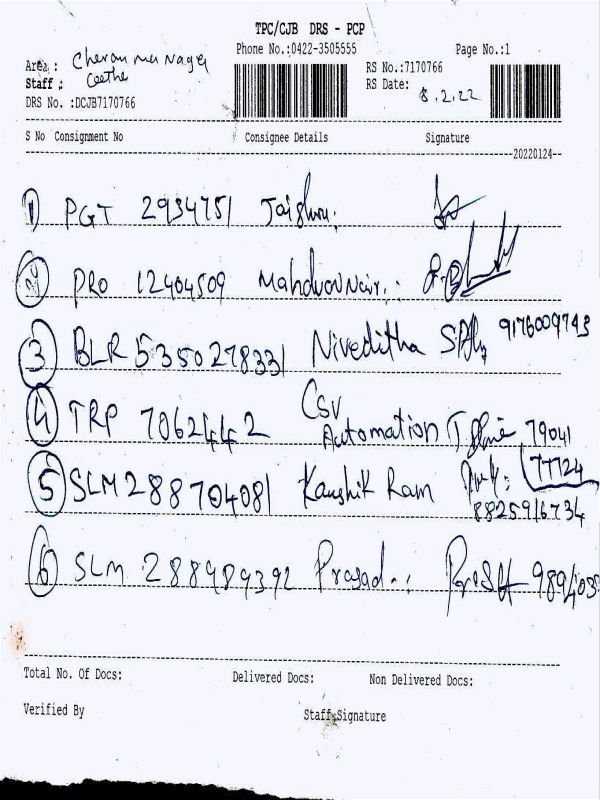 TPC/CJB DRS - PCP
Phone No.:0422-3505555 Page No.:1
Area : Cheran ma Nagar
Staff : Geetha
RS No.:7170766
RS Date: 8.2.22
DRS No. :DCJB7170766
S No Consignment No Consignee Details Signature
20220124
1 PGT 2934751
2 PRO 12404509 Nair
3 BLR 5350278331 Niveditha 9176009743
4 TRP 7062442 CSV
Automation 79041
77124
5 SLM 288704081 Kaushik Ram
8825916734
6 SLM 288989392 Prasad
Total No. Of Docs: Delivered Docs: Non Delivered Docs:
Verified By Staff Signature